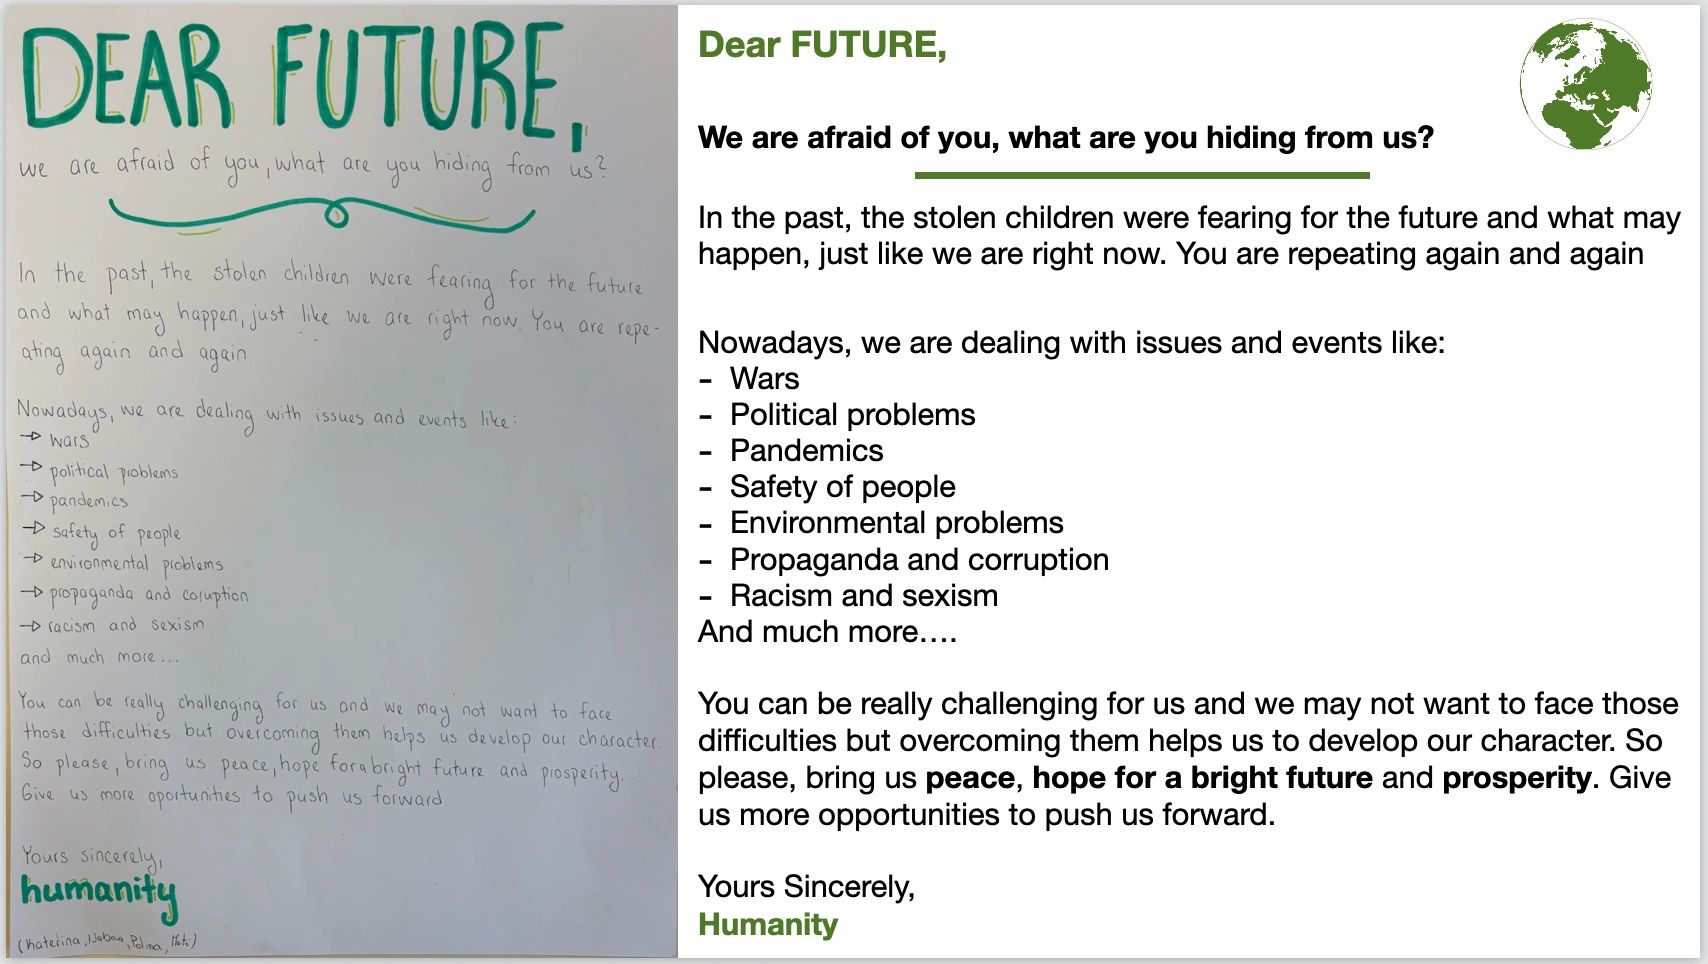 DEAR FUTURE,
we are afraid of you, what are you hiding from us?
In the past, the stolen children were fearing for the future
and what may happen, just like we are right now. You are repe-
ating again and again.
Nowadays, we are dealing with issues and events like:
→ wars
→ political problems
→ pandemics
→ safety of people
→ environmental problems
→ propaganda and coruption
→ racism and sexism
and much more...
You can be really challenging for us and we may not want to face
those difficulties but overcoming them helps us develop our character.
So please, bring us peace, hope for a bright future and prosperity.
Give us more oportunities to push us forward.
Yours sincerely,
humanity
(Katerina, Polina,
Dear FUTURE,
We are afraid of you, what are you hiding from us?
In the past, the stolen children were fearing for the future and what may
happen, just like we are right now. You are repeating again and again
Nowadays, we are dealing with issues and events like:
- Wars
- Political problems
- Pandemics
- Safety of people
- Environmental problems
- Propaganda and corruption
- Racism and sexism
And much more....
You can be really challenging for us and we may not want to face those
difficulties but overcoming them helps us to develop our character. So
please, bring us peace, hope for a bright future and prosperity. Give
us more opportunities to push us forward.
Yours Sincerely,
Humanity